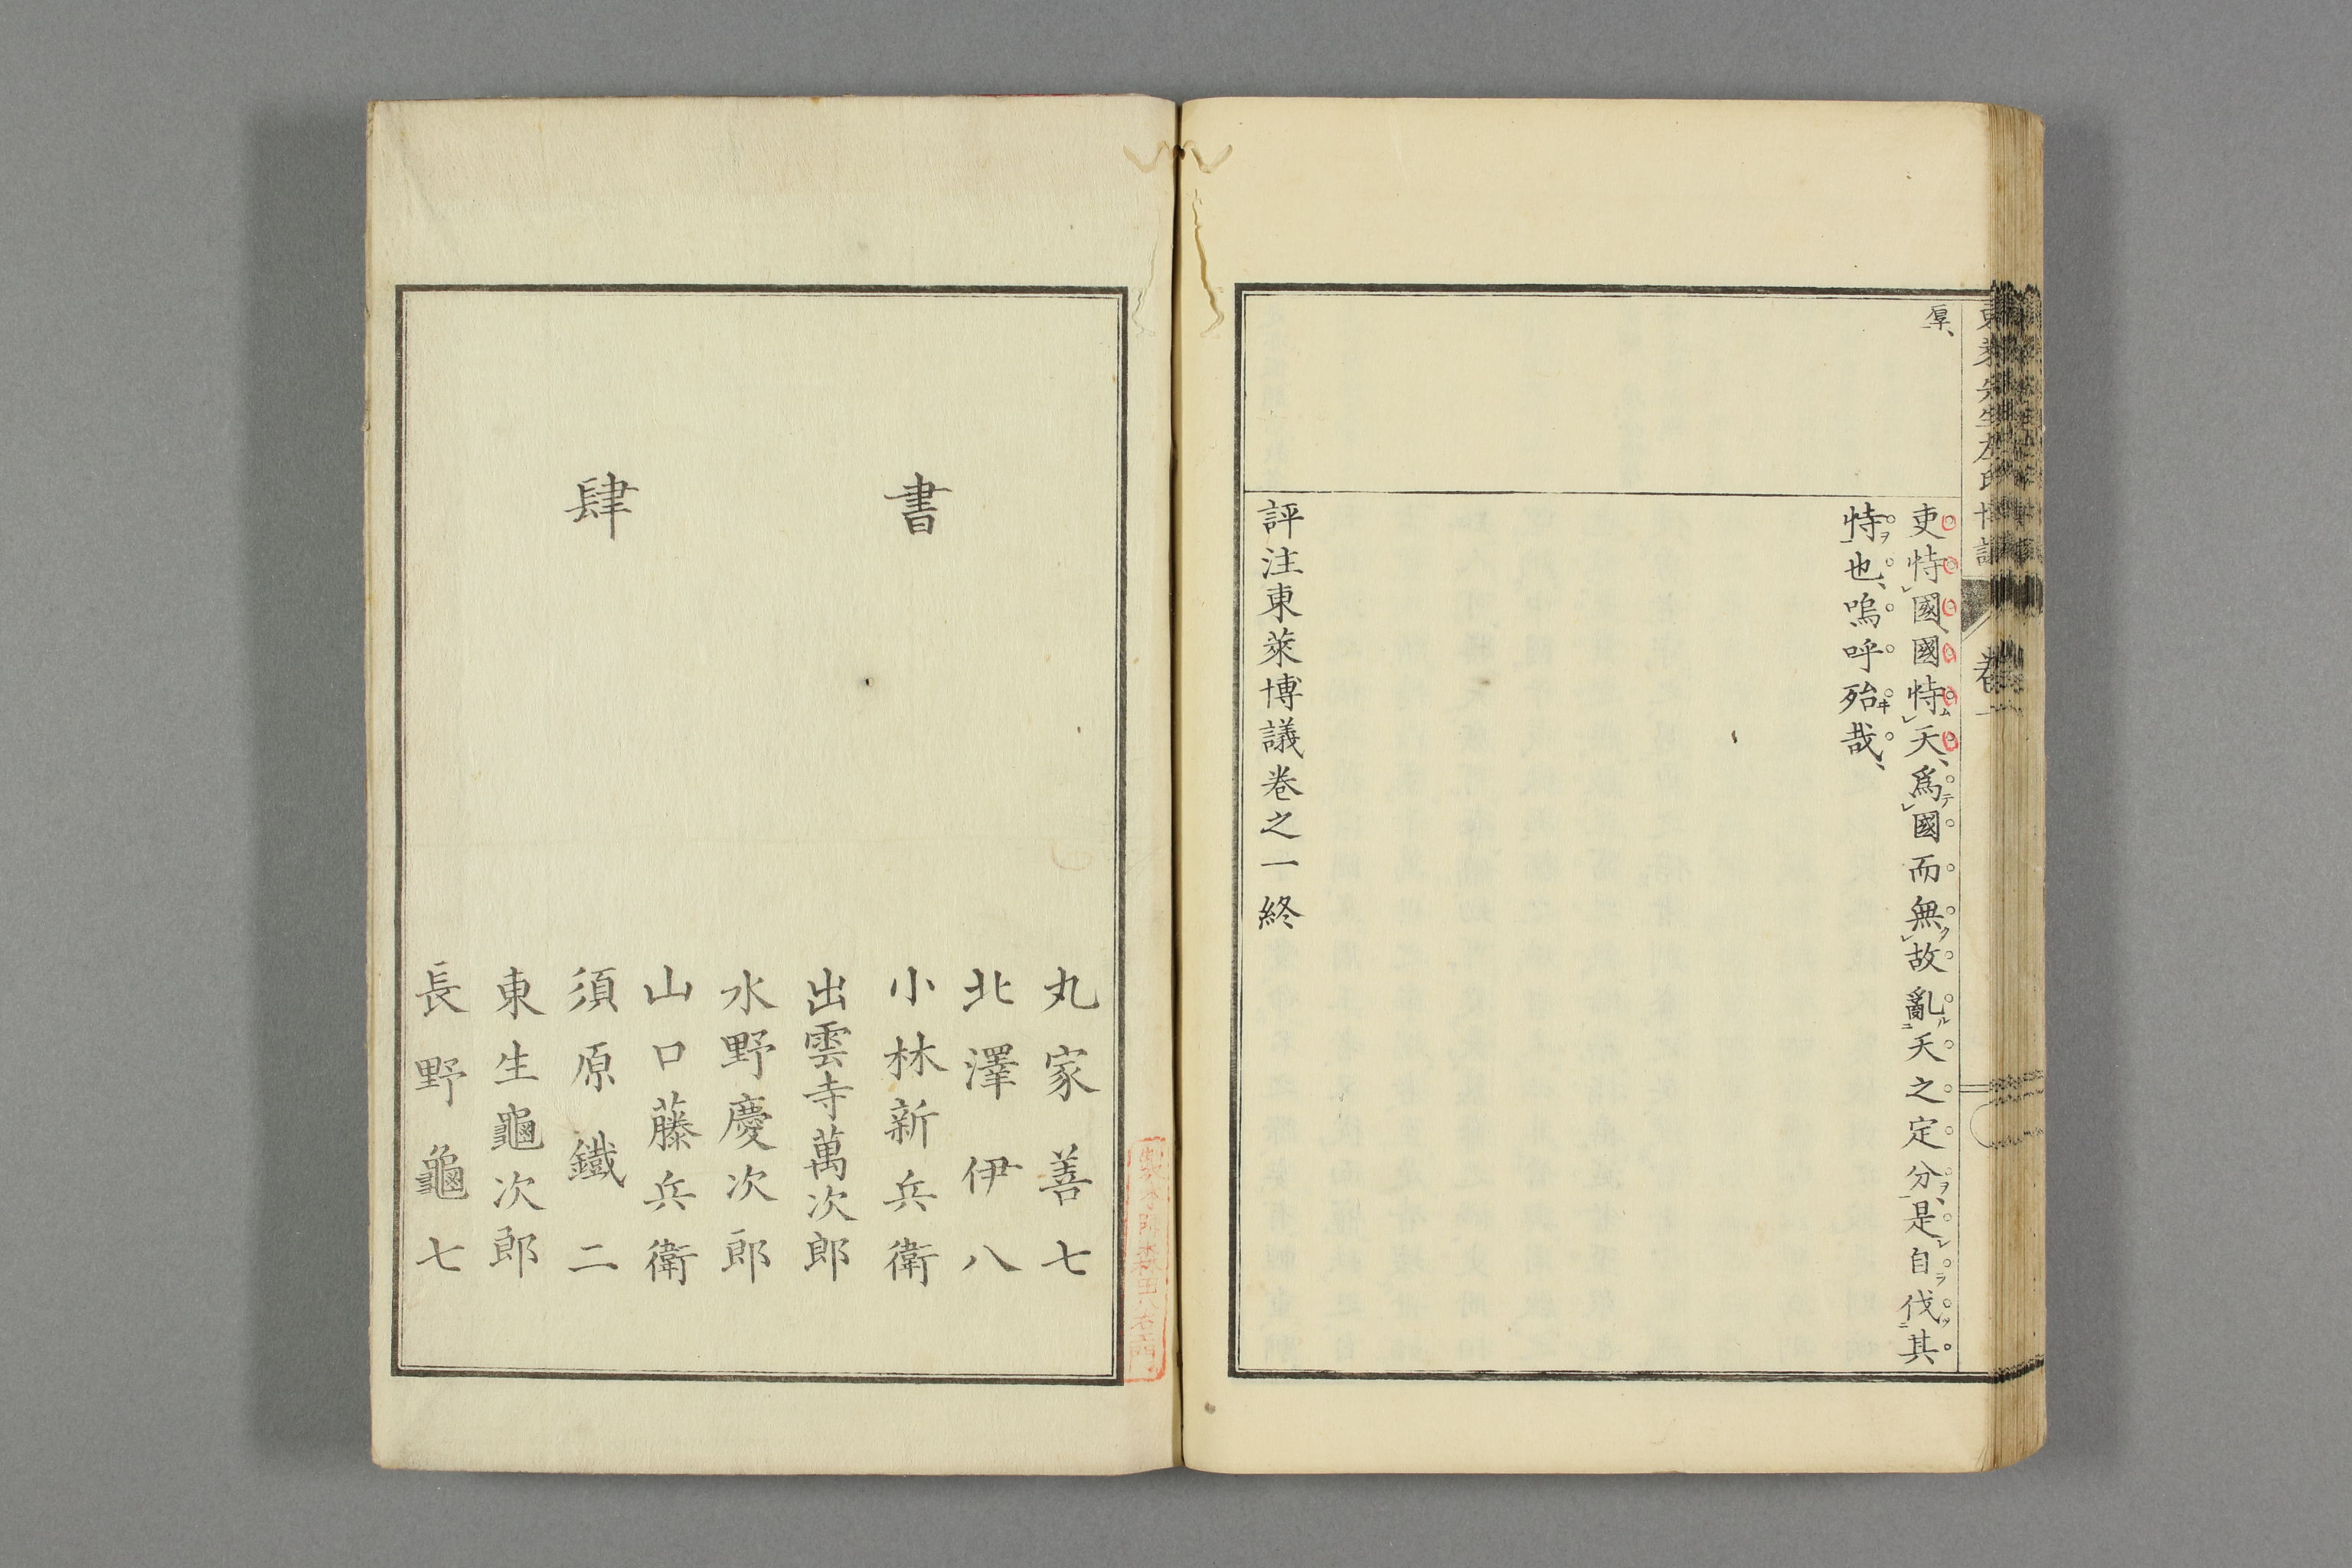 東萊先生左氏博議 卷一
厚、
吏恃國、國恃天、爲國而無故亂天之定分、是自伐其
恃也、嗚呼殆哉、
評注東萊博議卷之一終
書肆
丸家善七
北澤伊八
小林新兵衛
出雲寺萬次郎
水野慶次郎
山口藤兵衛
須原鐵二
東生龜次郎
長野龜七